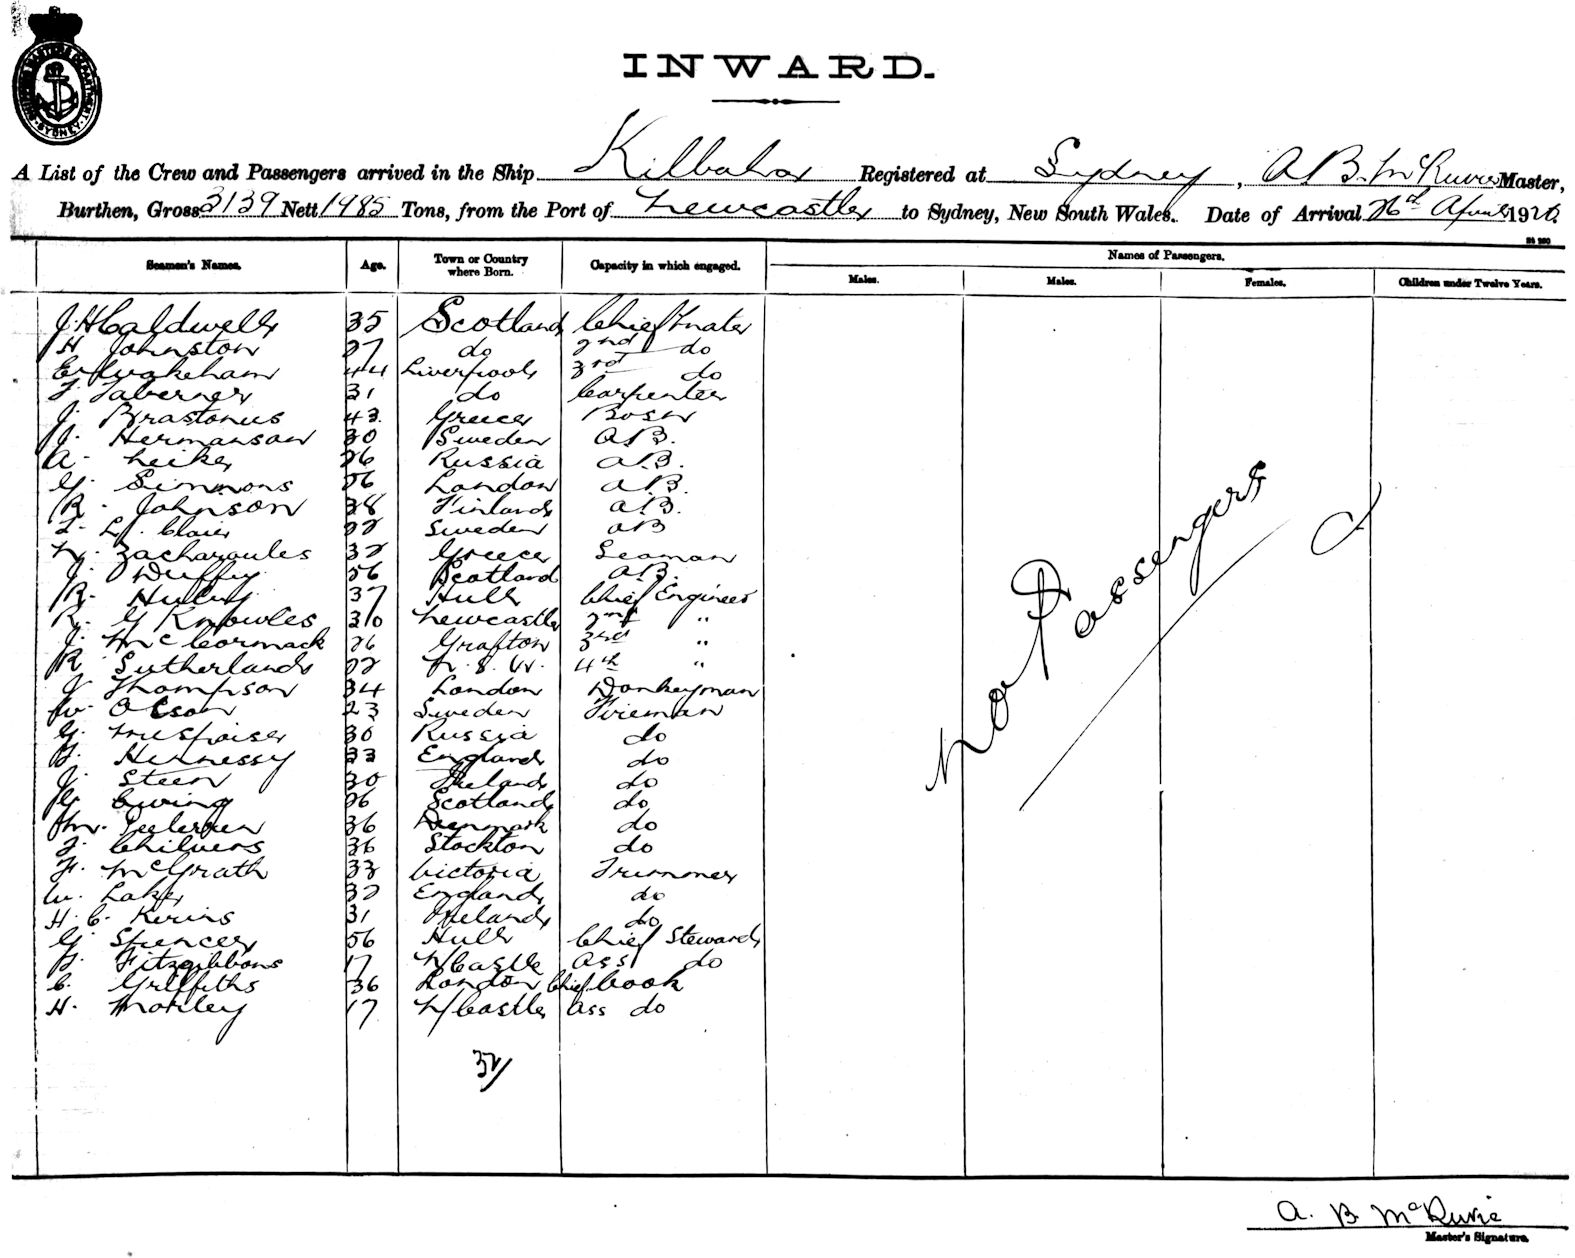 INWARD.
A List of the Crew and Passengers arrived in the Ship Kilbaha Registered at Sydney, A B. McRurie Master,
Burthen, Gross 3139 Nett 1985 Tons, from the Port of Newcastle to Sydney, New South Wales. Date of Arrival 26th April 192
Seamen's Names. Age. Town or Country where Born. Capacity in which engaged. Names of Passengers.
Males. Males. Females. Children under Twelve Years.
J. H Caldwell 35 Scotland Chief Mate
H Johnston 27 do 2nd do
E 44 Liverpool 3rd do
F Taberner 31 do Carpenter
J. Brastonus 43 Greece Bosn
J. Hermanson 30 Sweden A.B.
A. Leike 26 Russia A.B.
G. Simmons 56 London A.B.
R. Johnson 38 Finland A.B.
L. Clair 22 Sweden AB
N. Zacharoules 32 Greece Seaman
J. Duffy 56 Scotland A.B.
R. 37 Hull Chief Engineer
R. G Knowles 30 Newcastle 2nd "
J. McCormack 26 Grafton 3rd "
R Sutherland 22 N. S. W. 4th "
J Thompson 34 London Donkeyman
W. Olsson 23 Sweden Fireman
G. 30 Russia do
T. Hennessy 33 England do
J. Steen 30 Ireland do
G Ewing 26 Scotland do
Pedersen 36 Denmark do
J. Chilvers 36 Stockton do
F. McGrath 33 Victoria Trimmer
W. Lake 32 England do
H. C. Kerins 31 Ireland do
G Spencer 56 Hull Chief Steward
T. Fitzgibbons 17 N/Castle Ass do
C. Griffiths 36 London Chief Cook
H. Morley 17 N/Castle Ass do
32/
No Passengers
A. B. McRurie
Master's Signature.